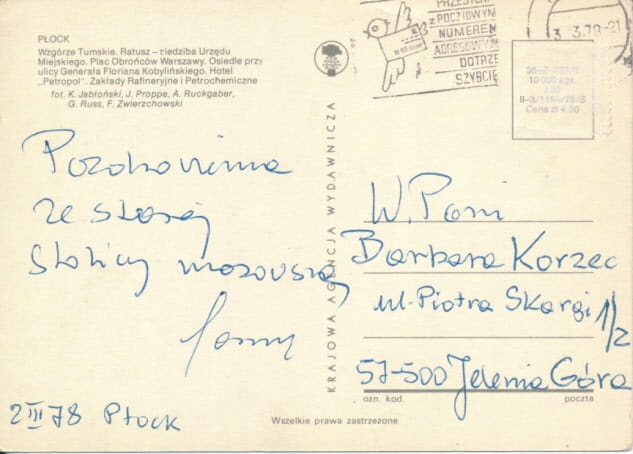 PŁOCK
Wzgórze Tumskie. Ratusz — siedziba Urzędu
Miejskiego. Plac Obrońców Warszawy. Osiedle przy
ulicy Generała Floriana Kobylińskiego. Hotel
„Petropol". Zakłady Rafineryjne i Petrochemiczne
fot. K. Jabłoński, J. Proppe, A. Ruckgaber,
G. Russ, F. Zwierzchowski
Pozdrowienia
ze starej
stolicy mazowsza
2 III 78 Płock
KRAJOWA AGENCJA WYDAWNICZA
PRZESYŁKA
z POCZTOWYM
NUMEREM
ADRESOWYM
DOTRZE
SZYBCIEJ
Cena zł
W. Pani
Barbara Korzec
ul. Piotra Skargi 1/2
57-500 Jelenia Góra
ozn. kod. poczta
Wszelkie prawa zastrzeżone